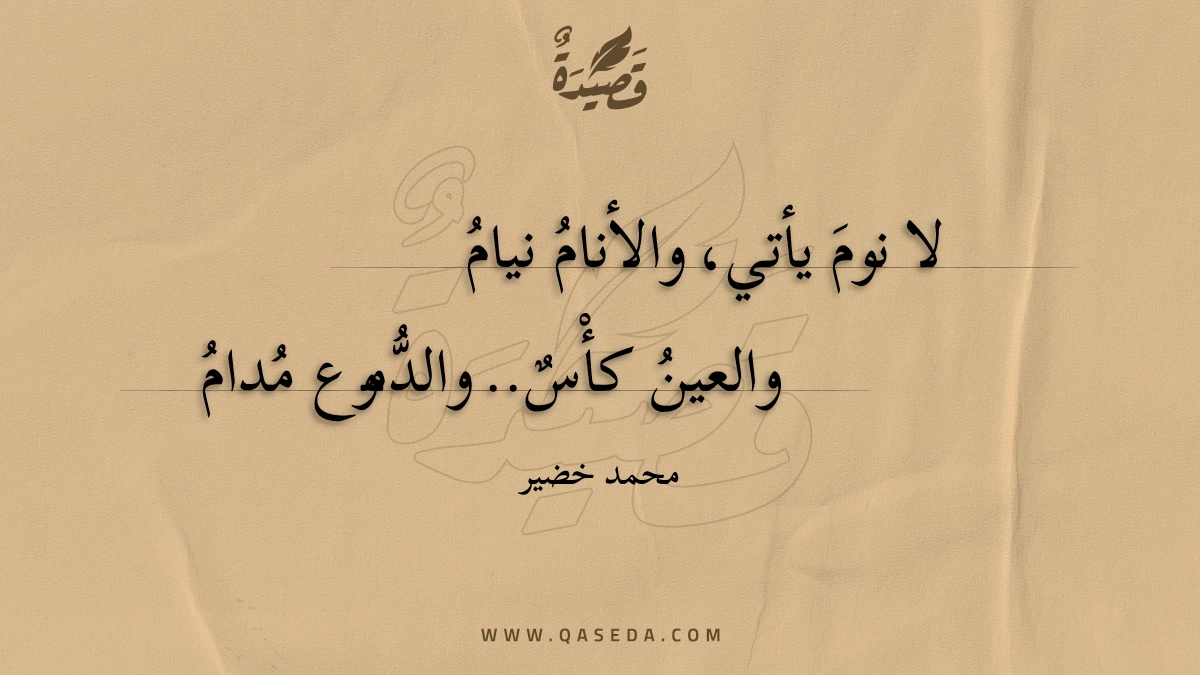 قَصِيدَةٌ
لا نومَ يأتي، والأنامُ نيامُ
والعينُ كأْسٌ.. والدُّموع مُدامُ
محمد خضير
WWW.QASEDA.COM